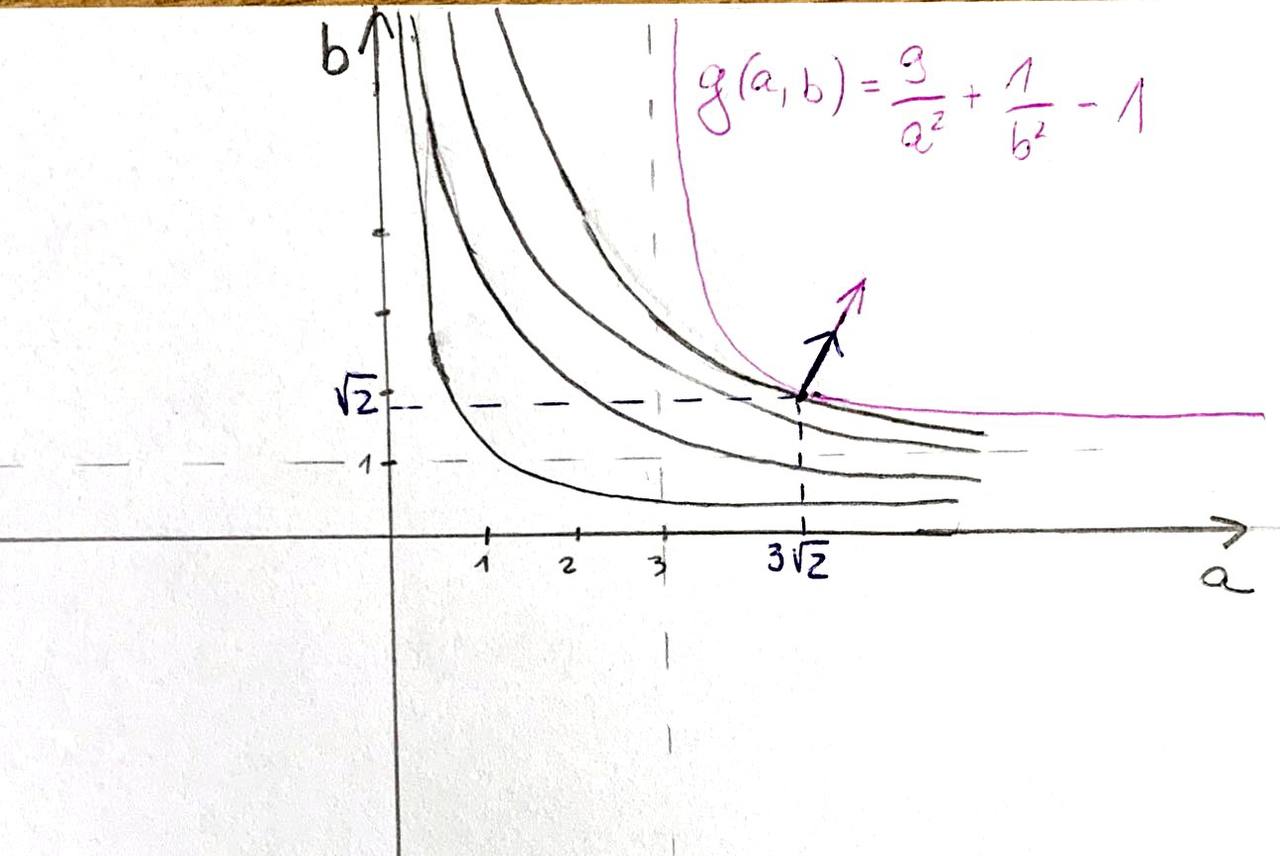 b
g(a,b) = 9/a² + 1/b² - 1
√2
1
1 2 3 3√2
a